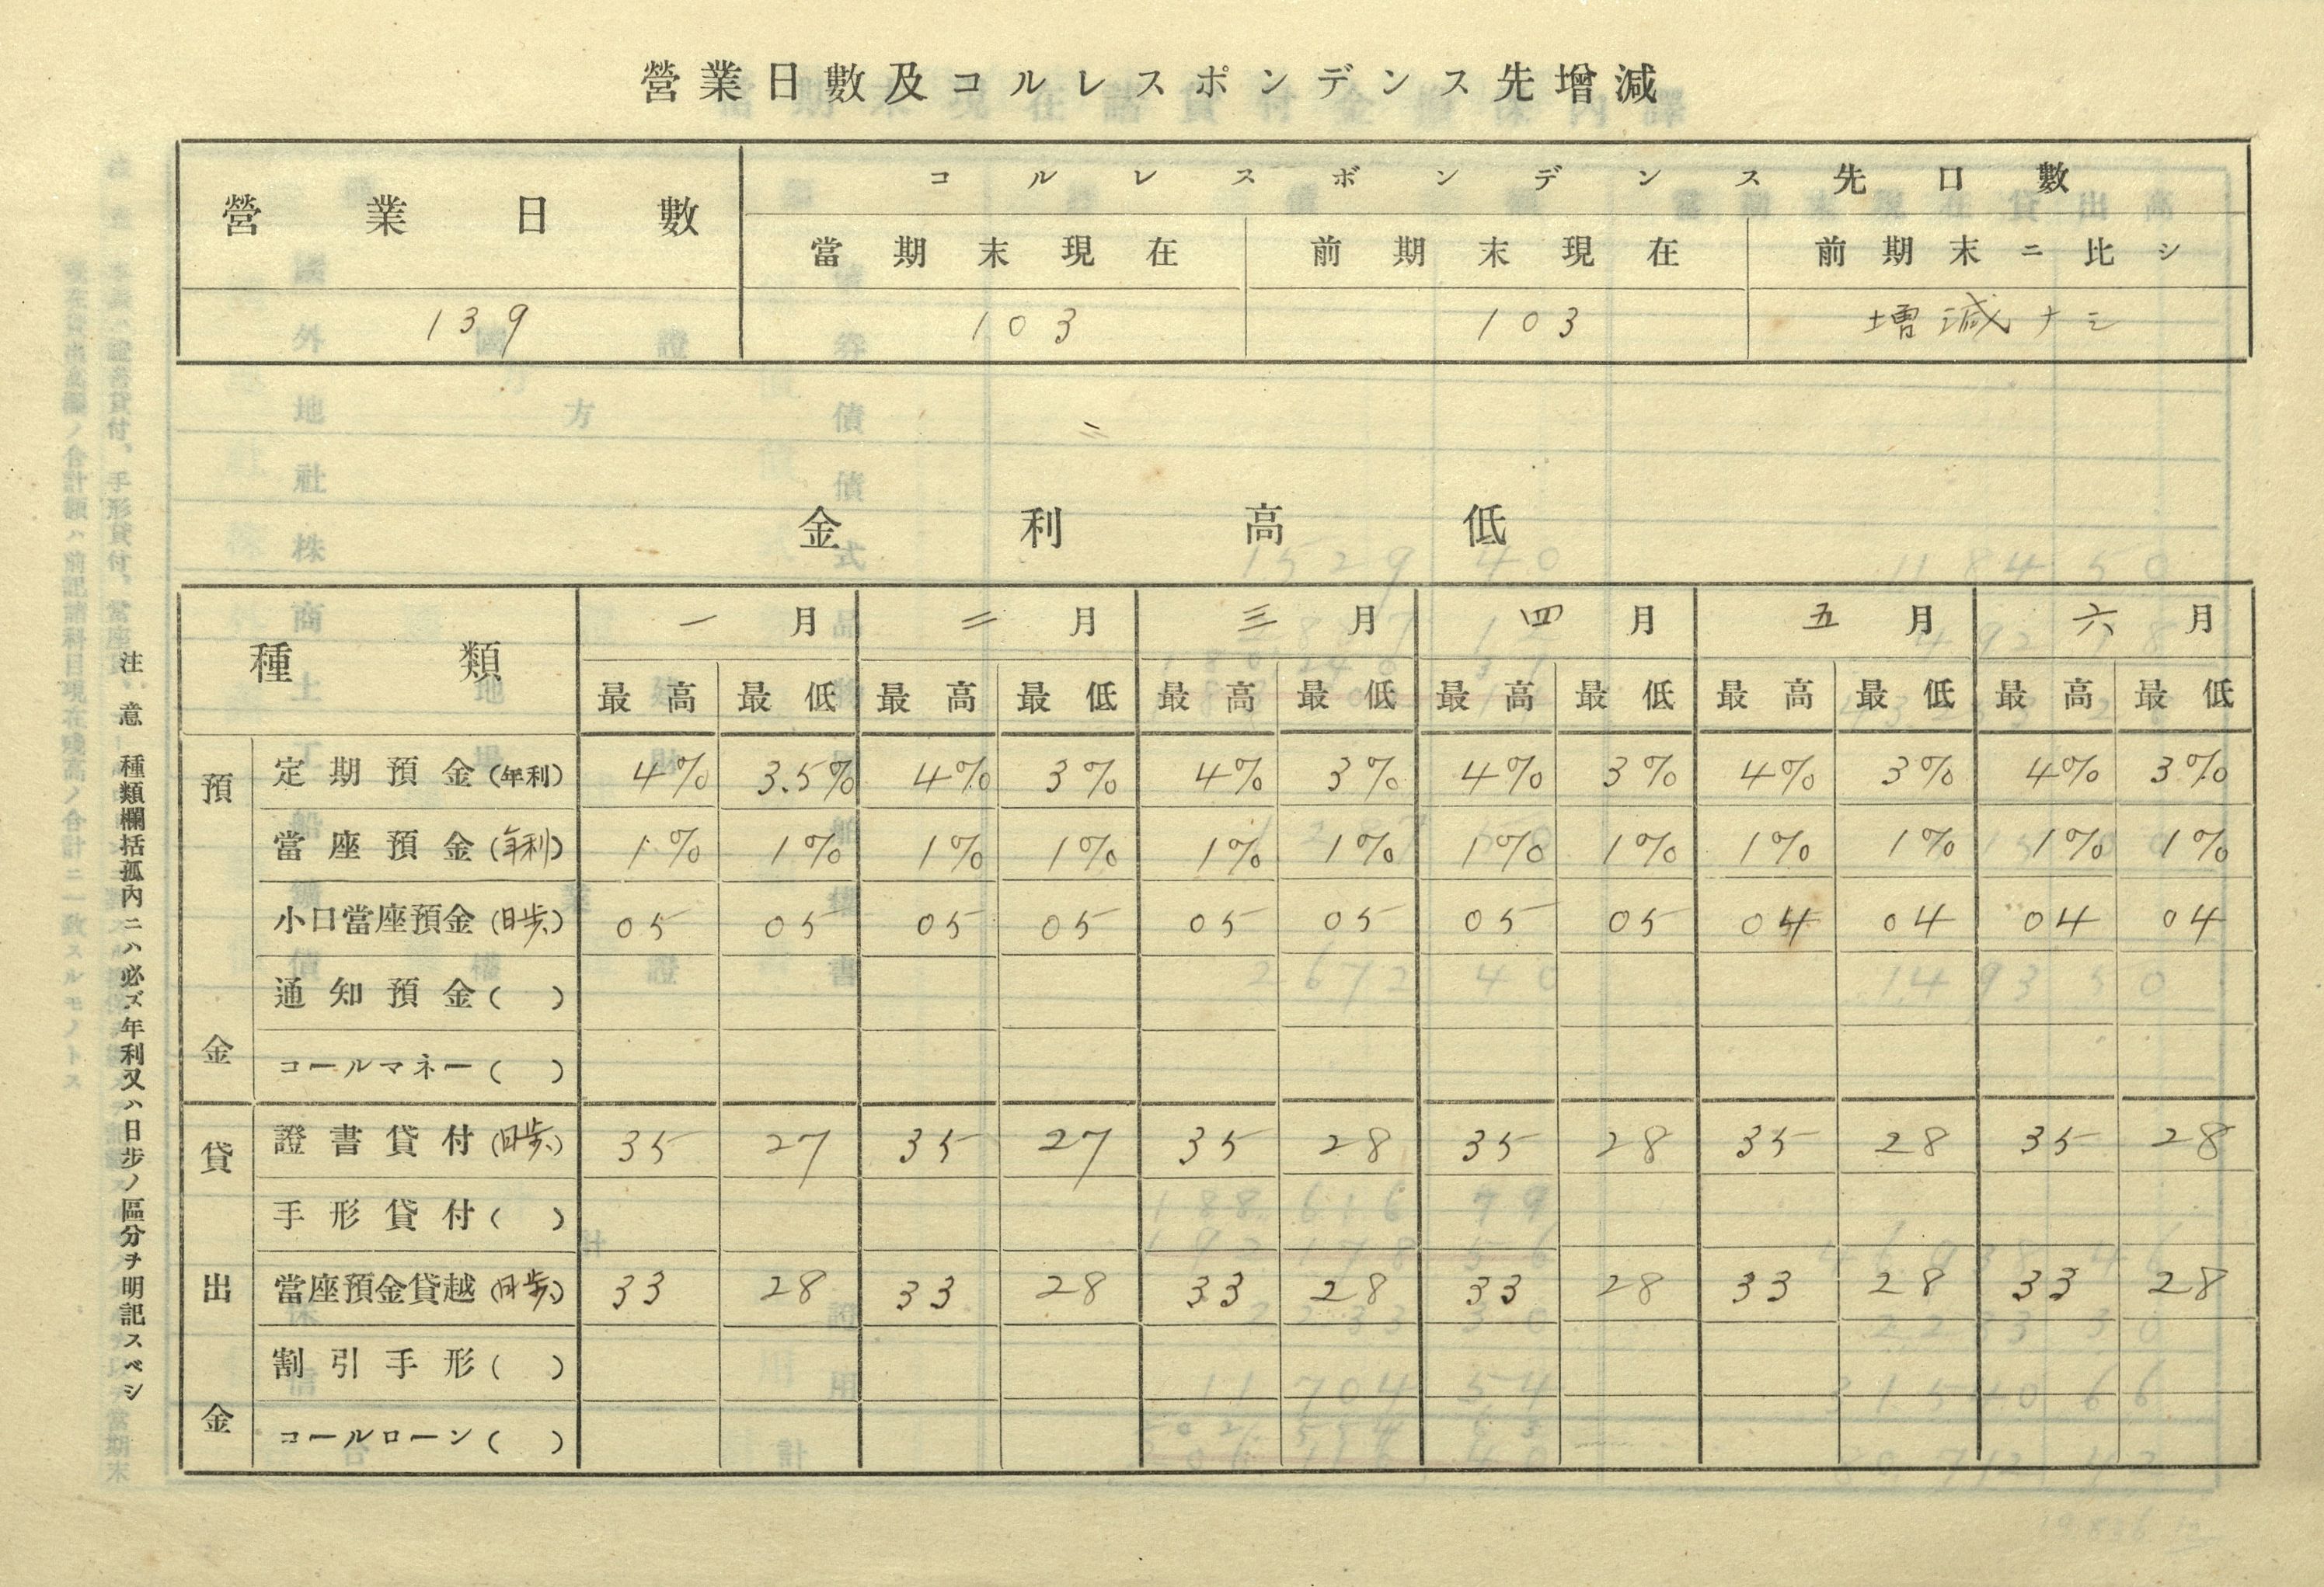 營業日數及コルレスポンデンス先增減
營業日數 コルレスポンデンス先口數
當期末現在 前期末現在 前期末ニ比シ
139 103 103 増減ナシ
金利高低
種類 一月 二月 三月 四月 五月 六月
最高 最低 最高 最低 最高 最低 最高 最低 最高 最低 最高 最低
預金
定期預金(年利) 4% 3.5% 4% 3% 4% 3% 4% 3% 4% 3% 4% 3%
當座預金(年利) 1% 1% 1% 1% 1% 1% 1% 1% 1% 1% 1% 1%
小口當座預金(日歩) 05 05 05 05 05 05 05 05 04 04 04 04
通知預金( )
コールマネー( )
貸出金
證書貸付(日歩) 35 27 35 27 35 28 35 28 35 28 35 28
手形貸付( )
當座預金貸越(日歩) 33 28 33 28 33 28 33 28 33 28 33 28
割引手形( )
コールローン( )
注意 種類欄括孤內ニハ必ズ年利又ハ日步ノ區分ヲ明記スベシ